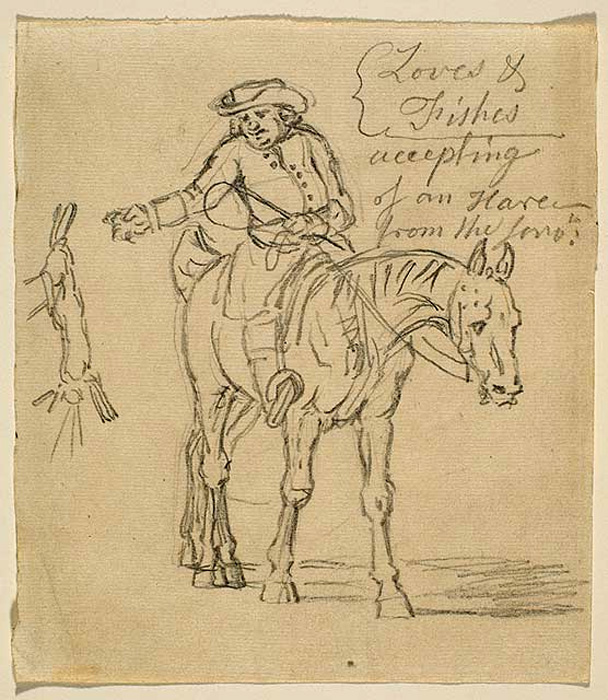 Loves &
Fishes
accepting
of an Hare
from the